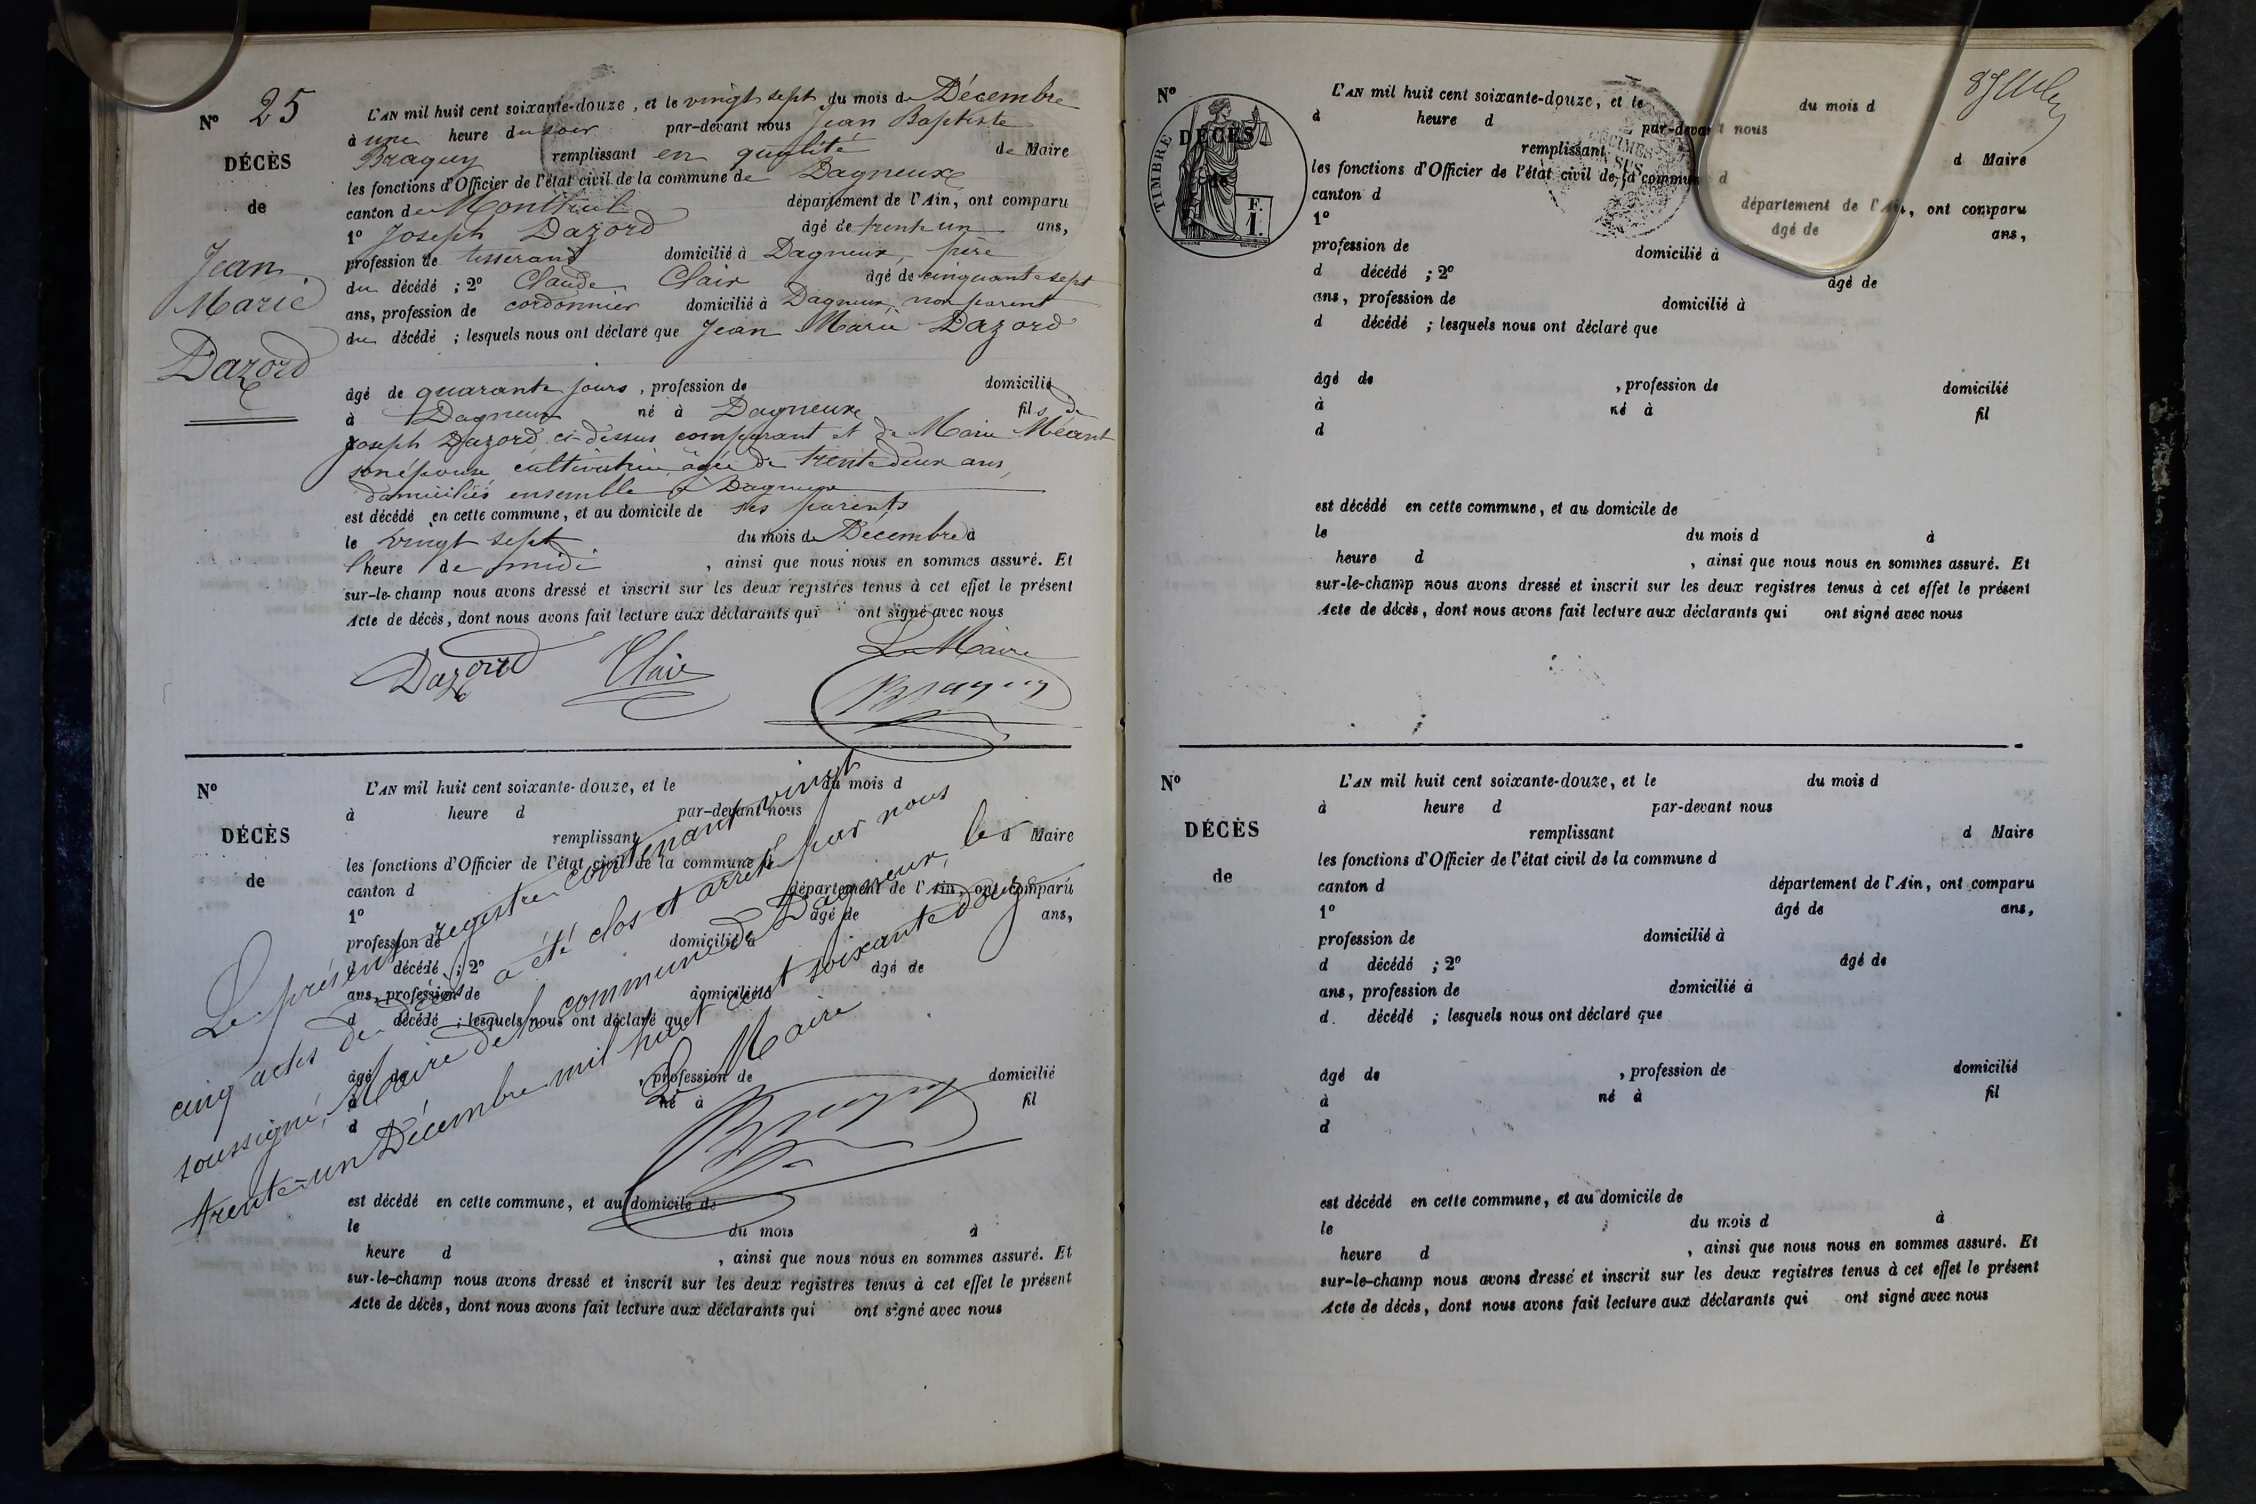 N° 25
DÉCÈS
de
Jean
Marie
Dazord
L'AN mil huit cent soixante-douze, et le vingt sept du mois de Décembre
à une heure du soir par-devant nous Jean Baptiste
Braguy remplissant en qualité de Maire
les fonctions d'Officier de l'état civil de la commune de Dagneux
canton de Montluel département de l'Ain, ont comparu
1° Joseph Dazord âgé de trente un ans,
profession de tisserand domicilié à Dagneux, père
du décédé ; 2° Claude Clair âgé de cinquante sept
ans, profession de cordonnier domicilié à Dagneux, non parent
du décédé ; lesquels nous ont déclaré que Jean Marie Dazord
âgé de quarante jours, profession de domicilié
à Dagneux né à Dagneux fils de
Joseph Dazord, ci-dessus comparant et de Marie Méant
son épouse, cultivatrice, âgée de trente deux ans,
domiciliés ensemble à Dagneux
est décédé en cette commune, et au domicile de ses parents
le vingt sept du mois de Décembre à
l'heure de midi, ainsi que nous nous en sommes assuré. Et
sur-le-champ nous avons dressé et inscrit sur les deux registres tenus à cet effet le présent
Acte de décès, dont nous avons fait lecture aux déclarants qui ont signé avec nous
Le Maire
Dazord Clair Braguy
N°
DÉCÈS
de
L'AN mil huit cent soixante-douze, et le du mois d
à heure d par-devant nous
remplissant d Maire
les fonctions d'Officier de l'état civil de la commune d
canton d département de l'Ain, ont comparu
1° âgé de ans,
profession de domicilié à
d décédé ; 2° âgé de
ans, profession de domicilié à
d décédé ; lesquels nous ont déclaré que
âgé de , profession de domicilié
à né à fil
d
Le présent registre contenant vingt
cinq actes de décès a été clos et arrêté par nous
soussigné, Maire de la commune de Dagneux, le
trente-un Décembre mil huit cent soixante douze
Le Maire
Braguy
est décédé en cette commune, et au domicile de
le du mois à
heure d , ainsi que nous nous en sommes assuré. Et
sur-le-champ nous avons dressé et inscrit sur les deux registres tenus à cet effet le présent
Acte de décès, dont nous avons fait lecture aux déclarants qui ont signé avec nous
N°
DÉCÈS
TIMBRE
F.
1.
L'AN mil huit cent soixante-douze, et le du mois d
à heure d par-devant nous
remplissant d Maire
les fonctions d'Officier de l'état civil de la commune d
canton d département de l'Ain, ont comparu
1° âgé de ans,
profession de domicilié à
d décédé ; 2° âgé de
ans, profession de domicilié à
d décédé ; lesquels nous ont déclaré que
âgé de , profession de domicilié
à né à fil
d
est décédé en cette commune, et au domicile de
le du mois d à
heure d , ainsi que nous nous en sommes assuré. Et
sur-le-champ nous avons dressé et inscrit sur les deux registres tenus à cet effet le présent
Acte de décès, dont nous avons fait lecture aux déclarants qui ont signé avec nous
N°
DÉCÈS
de
L'AN mil huit cent soixante-douze, et le du mois d
à heure d par-devant nous
remplissant d Maire
les fonctions d'Officier de l'état civil de la commune d
canton d département de l'Ain, ont comparu
1° âgé de ans,
profession de domicilié à
d décédé ; 2° âgé de
ans, profession de domicilié à
d décédé ; lesquels nous ont déclaré que
âgé de , profession de domicilié
à né à fil
d
est décédé en cette commune, et au domicile de
le du mois d à
heure d , ainsi que nous nous en sommes assuré. Et
sur-le-champ nous avons dressé et inscrit sur les deux registres tenus à cet effet le présent
Acte de décès, dont nous avons fait lecture aux déclarants qui ont signé avec nous